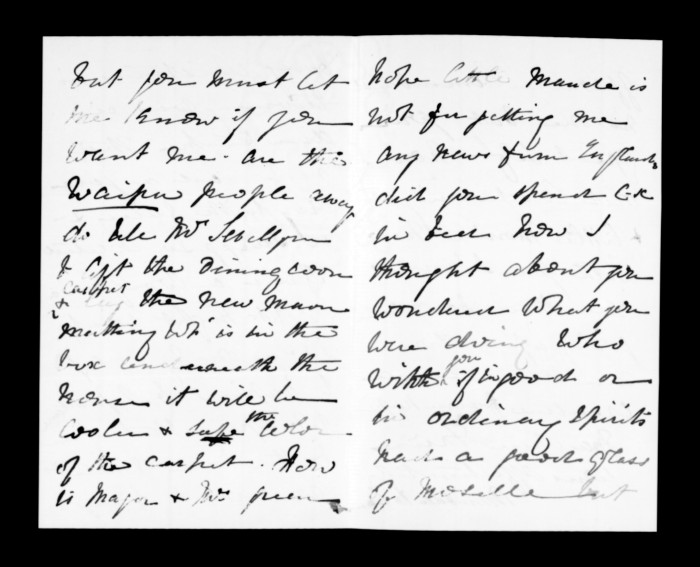 but you must let
me know if you
want me. are the
Waipu people away
do tell Mr
to lift the Dining room
carpet
& lay the new maori
matting wh is in the
box underneath the
house it will be
cooler & safe the color
of the carpet. How
is Major & Mrs Green
hope little Maude is
not forgetting me
any news from England
did you spend
in bed how I
thought about you
wondered what you
were doing who
with & if you in good or
in ordinary spirits
had a good glass
of Moselle but